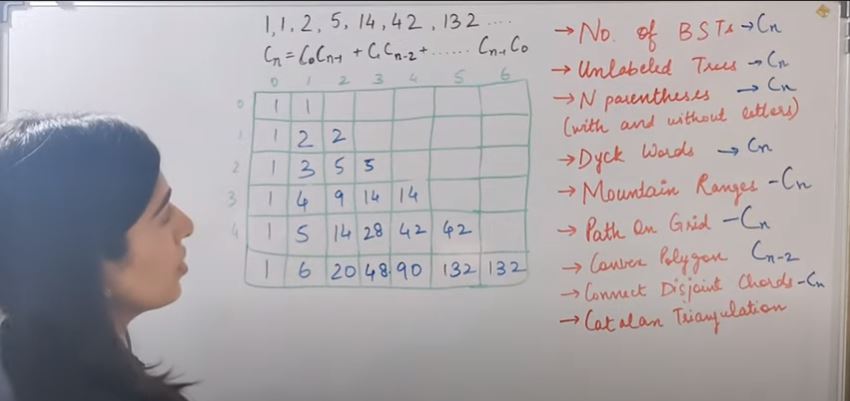 1, 1, 2, 5, 14, 42, 132 ....
Cn = C0Cn-1 + C1Cn-2 + ...... Cn-1C0
0 1 2 3 4 5 6
0 1 1
1 1 2 2
2 1 3 5 5
3 1 4 9 14 14
4 1 5 14 28 42 42
1 6 20 48 90 132 132
→ No. of BSTs → Cn
→ Unlabeled Trees → Cn
→ N parentheses → Cn
(with and without letters)
→ Dyck Words → Cn
→ Mountain Ranges - Cn
→ Path On Grid - Cn
→ Convex Polygon Cn-2
→ Connect Disjoint Chords - Cn
→ Catalan Triangulation